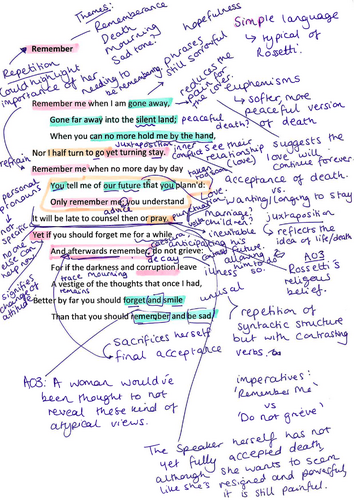 Themes:
Rememberance
Death
mourning
Sad tone.
hopefulness
Simple language
typical of
Rossetti.
Remember
Repetition
Could highlight
importance of her
needing to
be remembered.
phrases
still sorrowful
reduces the
pain for
the lover.
euphemisms
softer, more
peaceful version
of death
Remember me when I am gone away,
Gone far away into the silent land;
peaceful
death?
When you can no more hold me by the hand,
Nor I half turn to go yet turning stay.
juxtaposition
inner
conflict
see their
relationship
suggests the
love will
continue forever.
refrain
Remember me when no more day by day
You tell me of our future that you plann'd:
Only remember me; you understand
acceptance of death.
vs.
wanting/longing to stay
marriage?
children?
juxtaposition
reflects the
idea of life/death
personal
pronouns
not
specific
no one
else can
advice
It will be late to counsel then or pray.
inevitable
Yet if you should forget me for a while
And afterwards remember, do not grieve:
anticipating his
future.
allowing
himself to
so.
decay
illness
For if the darkness and corruption leave
trace mourning
A vestige of the thoughts that once I had,
remains
signifies
change of
attitude
AO3
Rossetti's
religious
belief.
Better by far you should forget and smile
unusual
Than that you should remember and be sad.
sacrifices herself
final acceptance
repetition of
syntactic structure
but with contrasting
verbs.
AO3: A woman would've
been thought to not
reveal these kind of
atypical views.
imperatives:
'Remember Me'
vs
'Do not grieve'
The speaker herself has not
yet fully accepted death,
although she wants to seem
like she's resigned and powerful,
it is still painful.